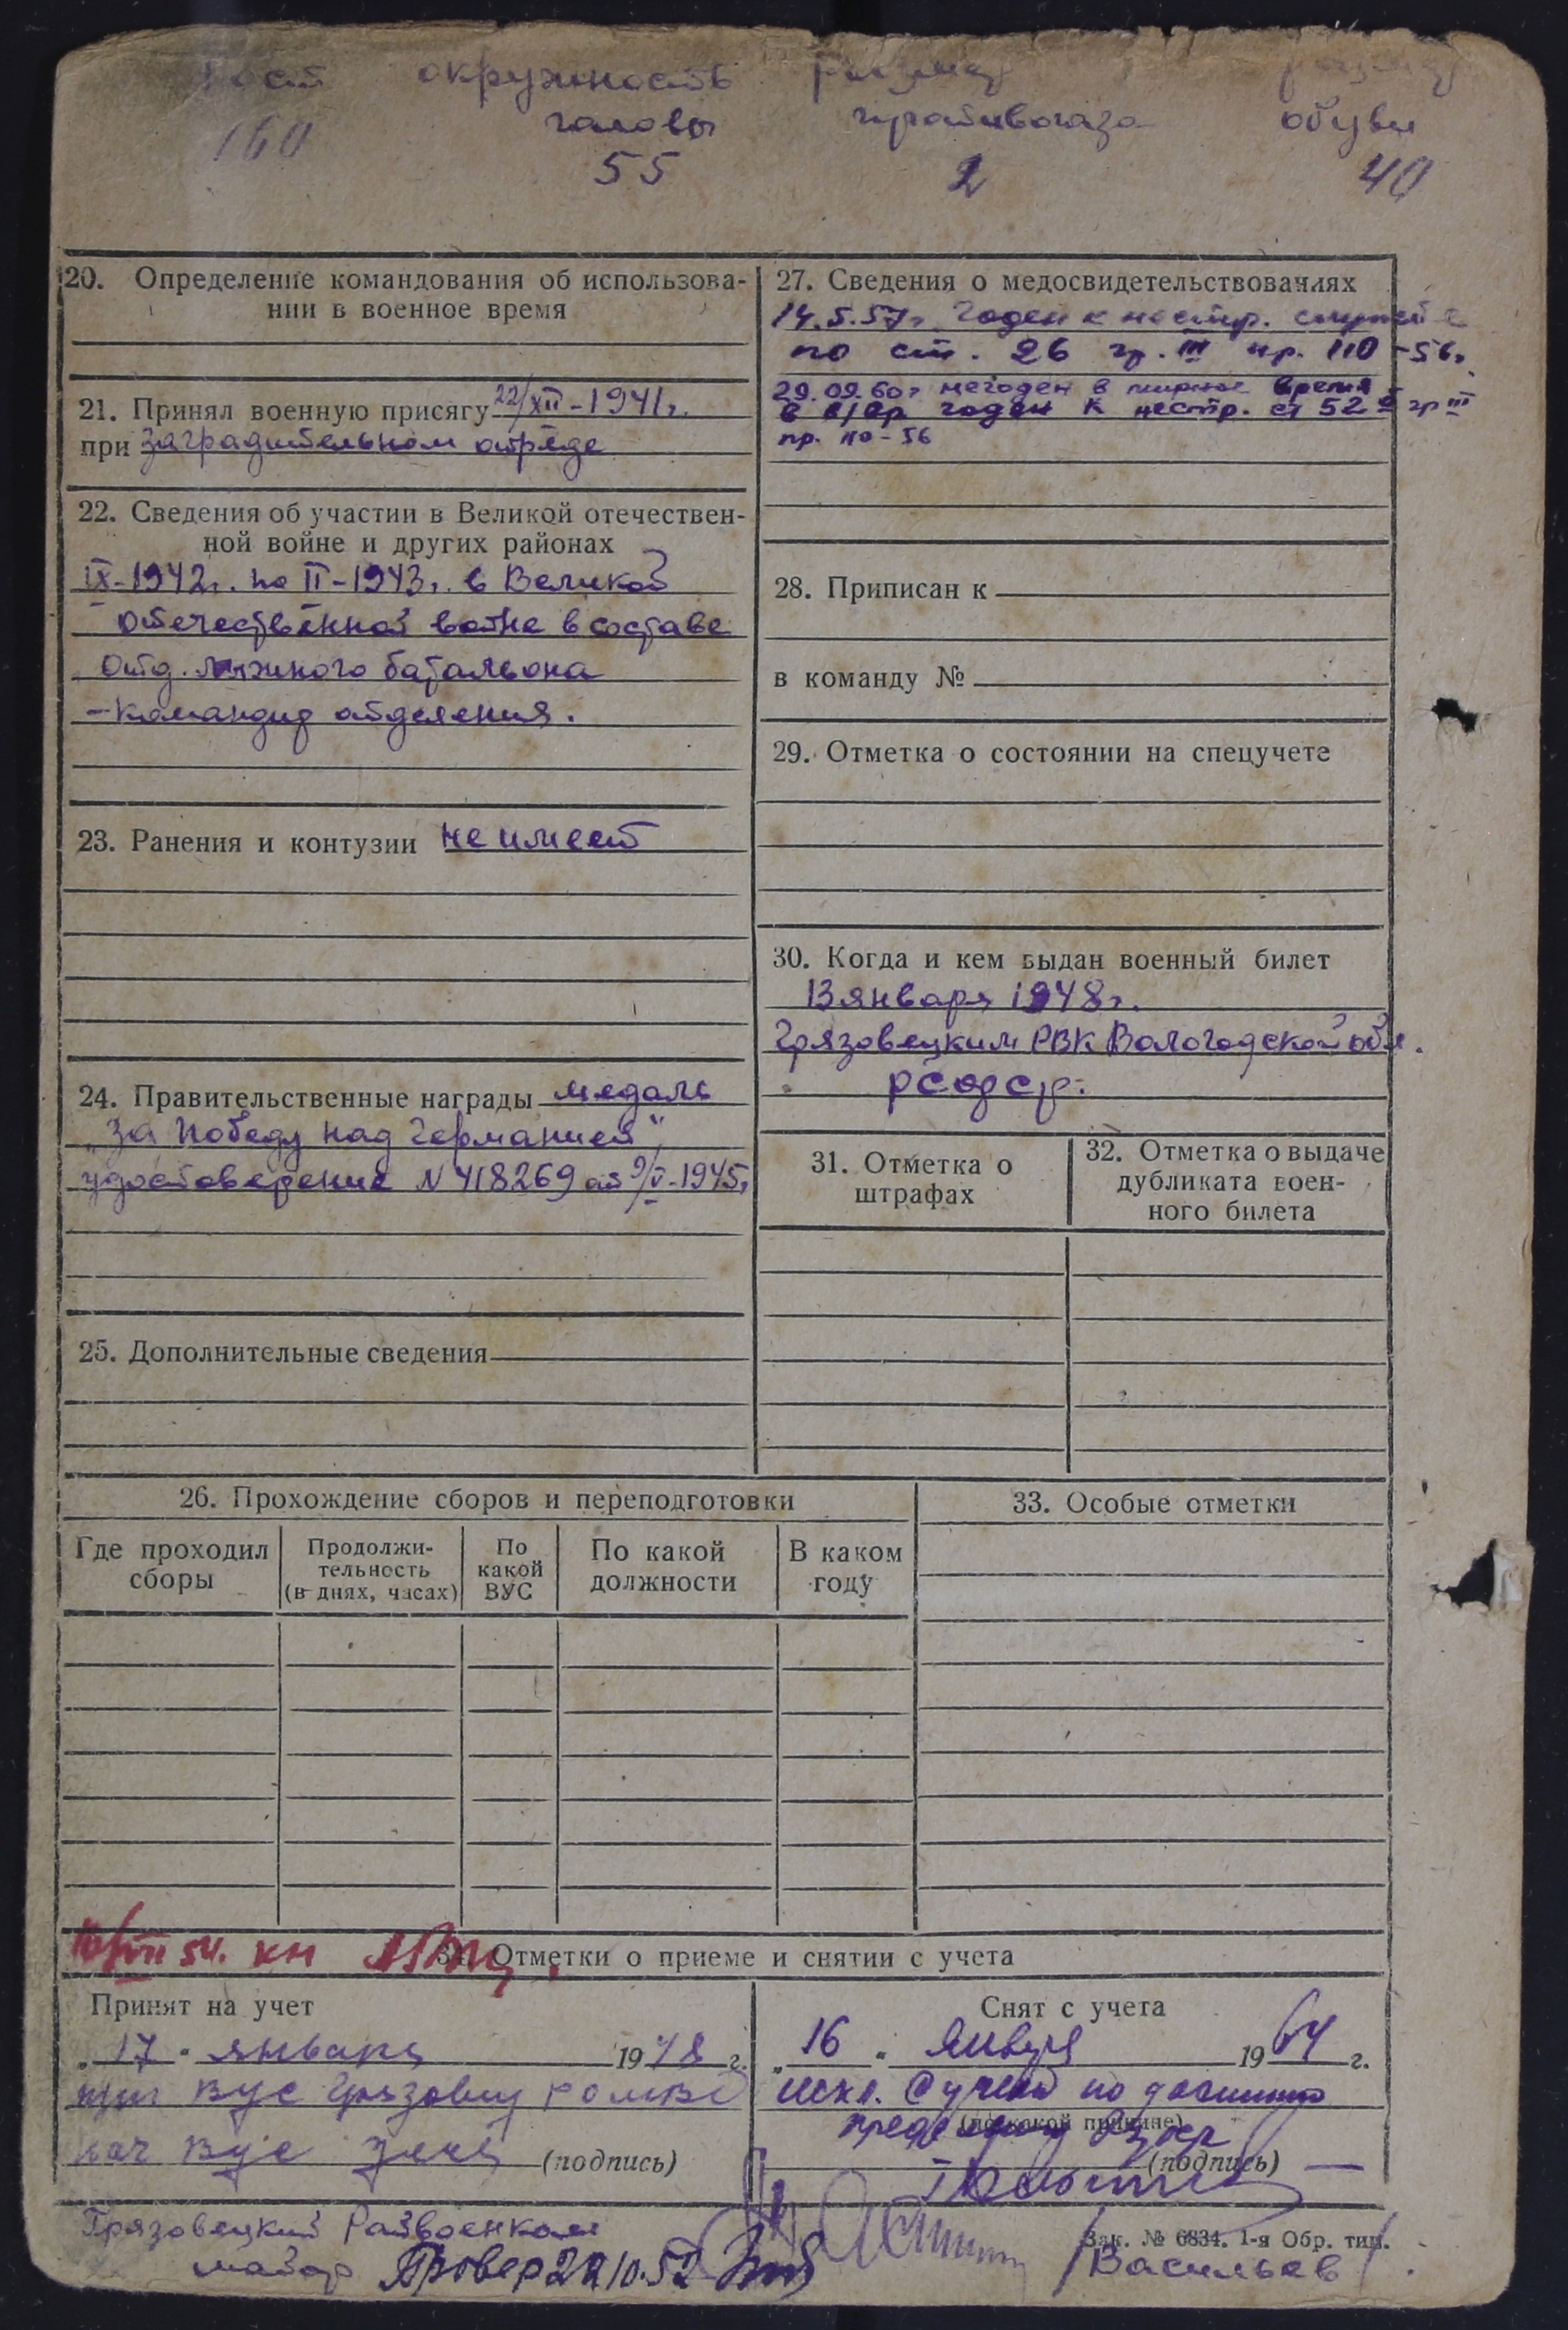 Рост окружность размер размер
головы противогаза обуви
160 55 2 40
20. Определение командования об использова-
нии в военное время
21. Принял военную присягу 22/XII-1941г.
при заградительном отряде
22. Сведения об участии в Великой отечествен-
ной войне и других районах
IX-1942г. по II-1943г. в Великой
отечественной войне в составе
отд. лыжного батальона
-командир отделения.
23. Ранения и контузии не имеет
24. Правительственные награды медаль
„За победу над Германией"
удостоверение N 418269 от 9/V-1945г
25. Дополнительные сведения
27. Сведения о медосвидетельствованиях
14.5.57г. Годен к нестр. службе
по ст. 26 гр. III пр. 110-56г.
29.09.60г негоден в мирное время
в в/вр годен к нестр. ст 52 гр III
пр. 110-56
28. Приписан к
в команду №
29. Отметка о состоянии на спецучете
30. Когда и кем выдан военный билет
13 января 1948г.
Грязовецким РВК Вологодской обл.
РСФСР.
31. Отметка о
штрафах
32. Отметка о выдаче
дубликата воен-
ного билета
26. Прохождение сборов и переподготовки
Где проходил
сборы
Продолжи-
тельность
(в днях, часах)
По
какой
ВУС
По какой
должности
В каком
году
33. Особые отметки
54. кн
34. Отметки о приеме и снятии с учета
Принят на учет
„17" января 1948 г.
ВУС
нач ВУС (подпись)
Снят с учета
„16" января 1964 г.
искл. с учета по достиж
пред (по какой причине) возр
(подпись)
Грязовецкий Райвоенком
майор Провер 22/10.52
/Васильев/
Зак. № 6834. 1-я Обр. тип.